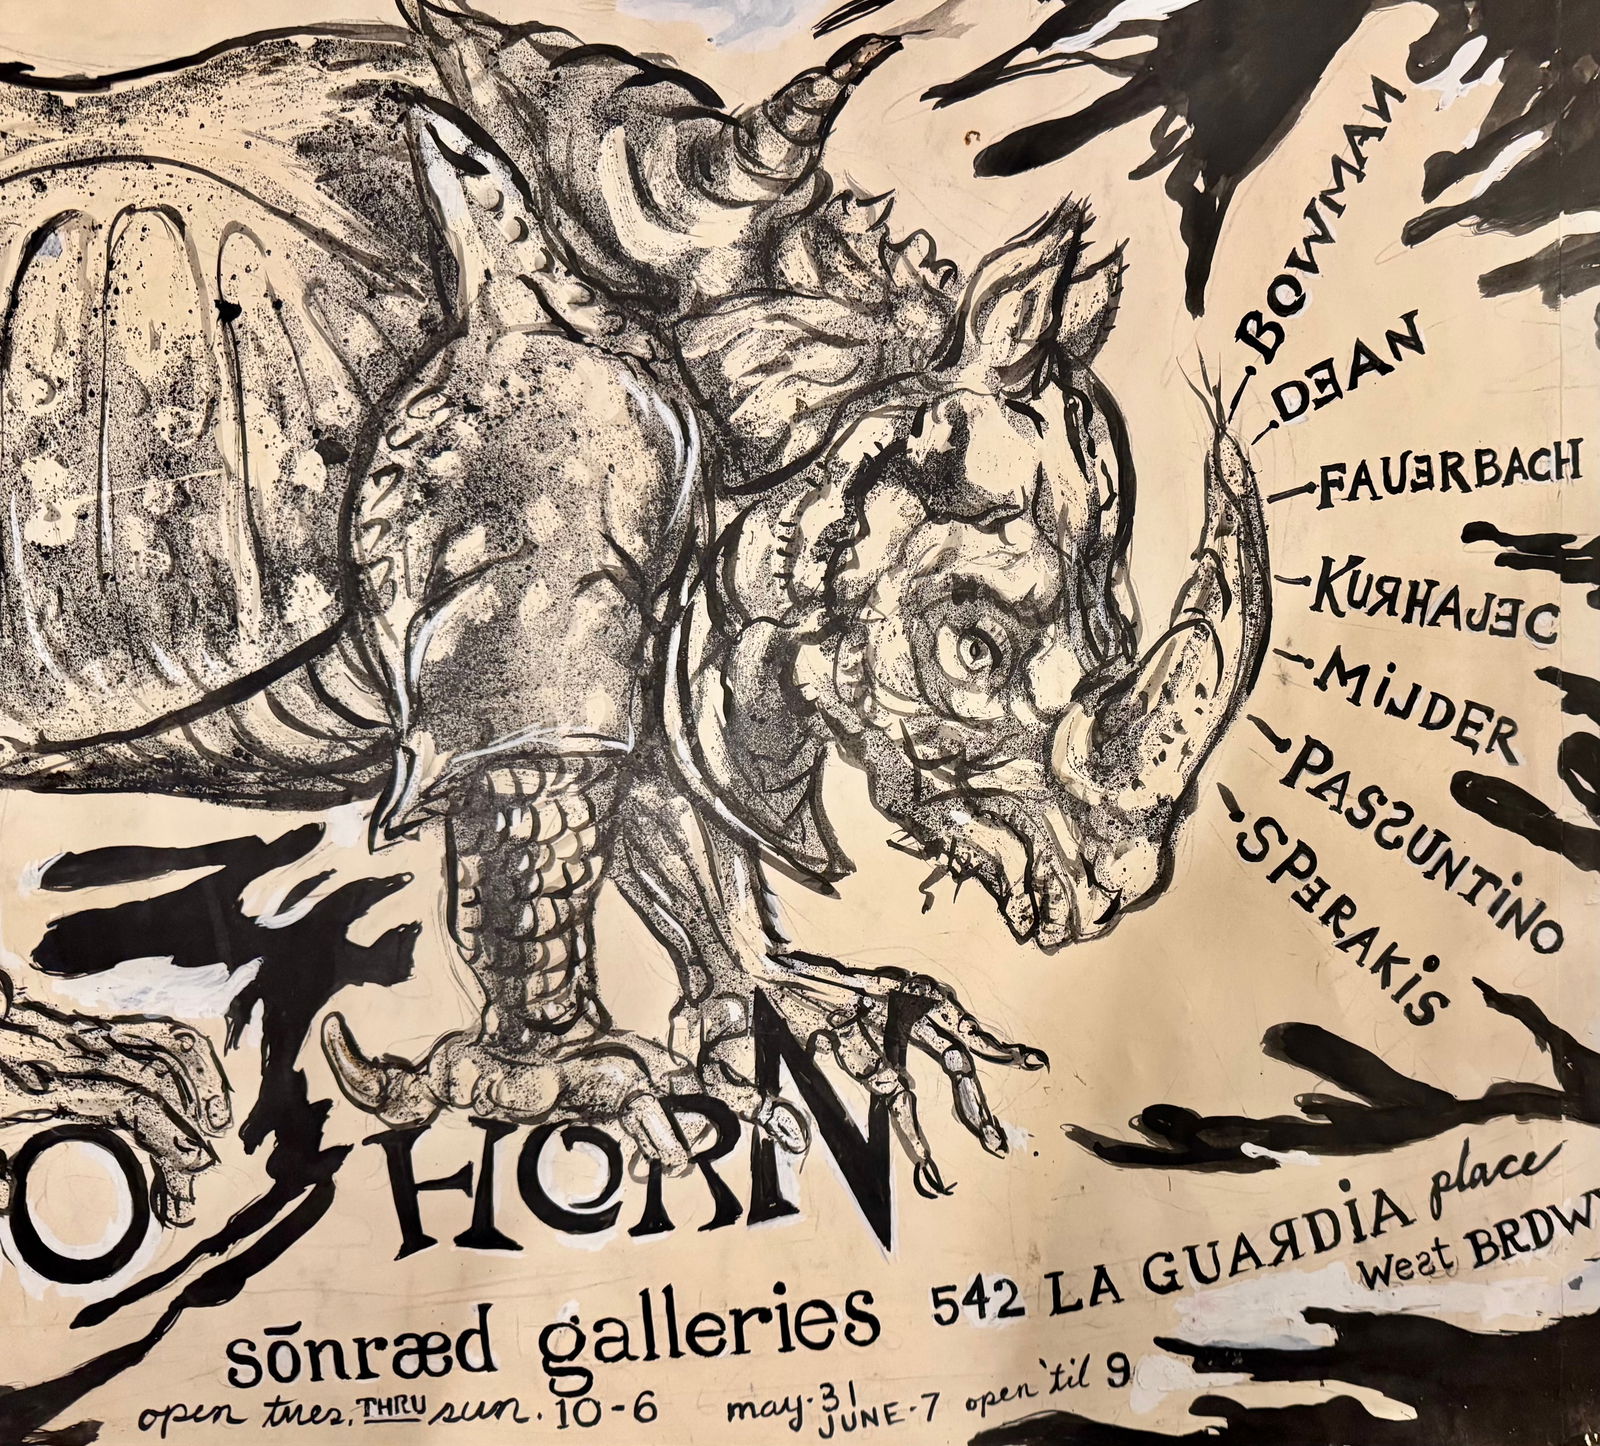 BOWMAN
DEAN
FAUERBACH
KURHAJEC
MIJDER
PASSUNTINO
SPERAKIS
O HORN
sōnræd galleries
542 LA GUARDIA place
West BRDWY
open tues. THRU sun. 10-6
may·31
JUNE·7
open 'til 9